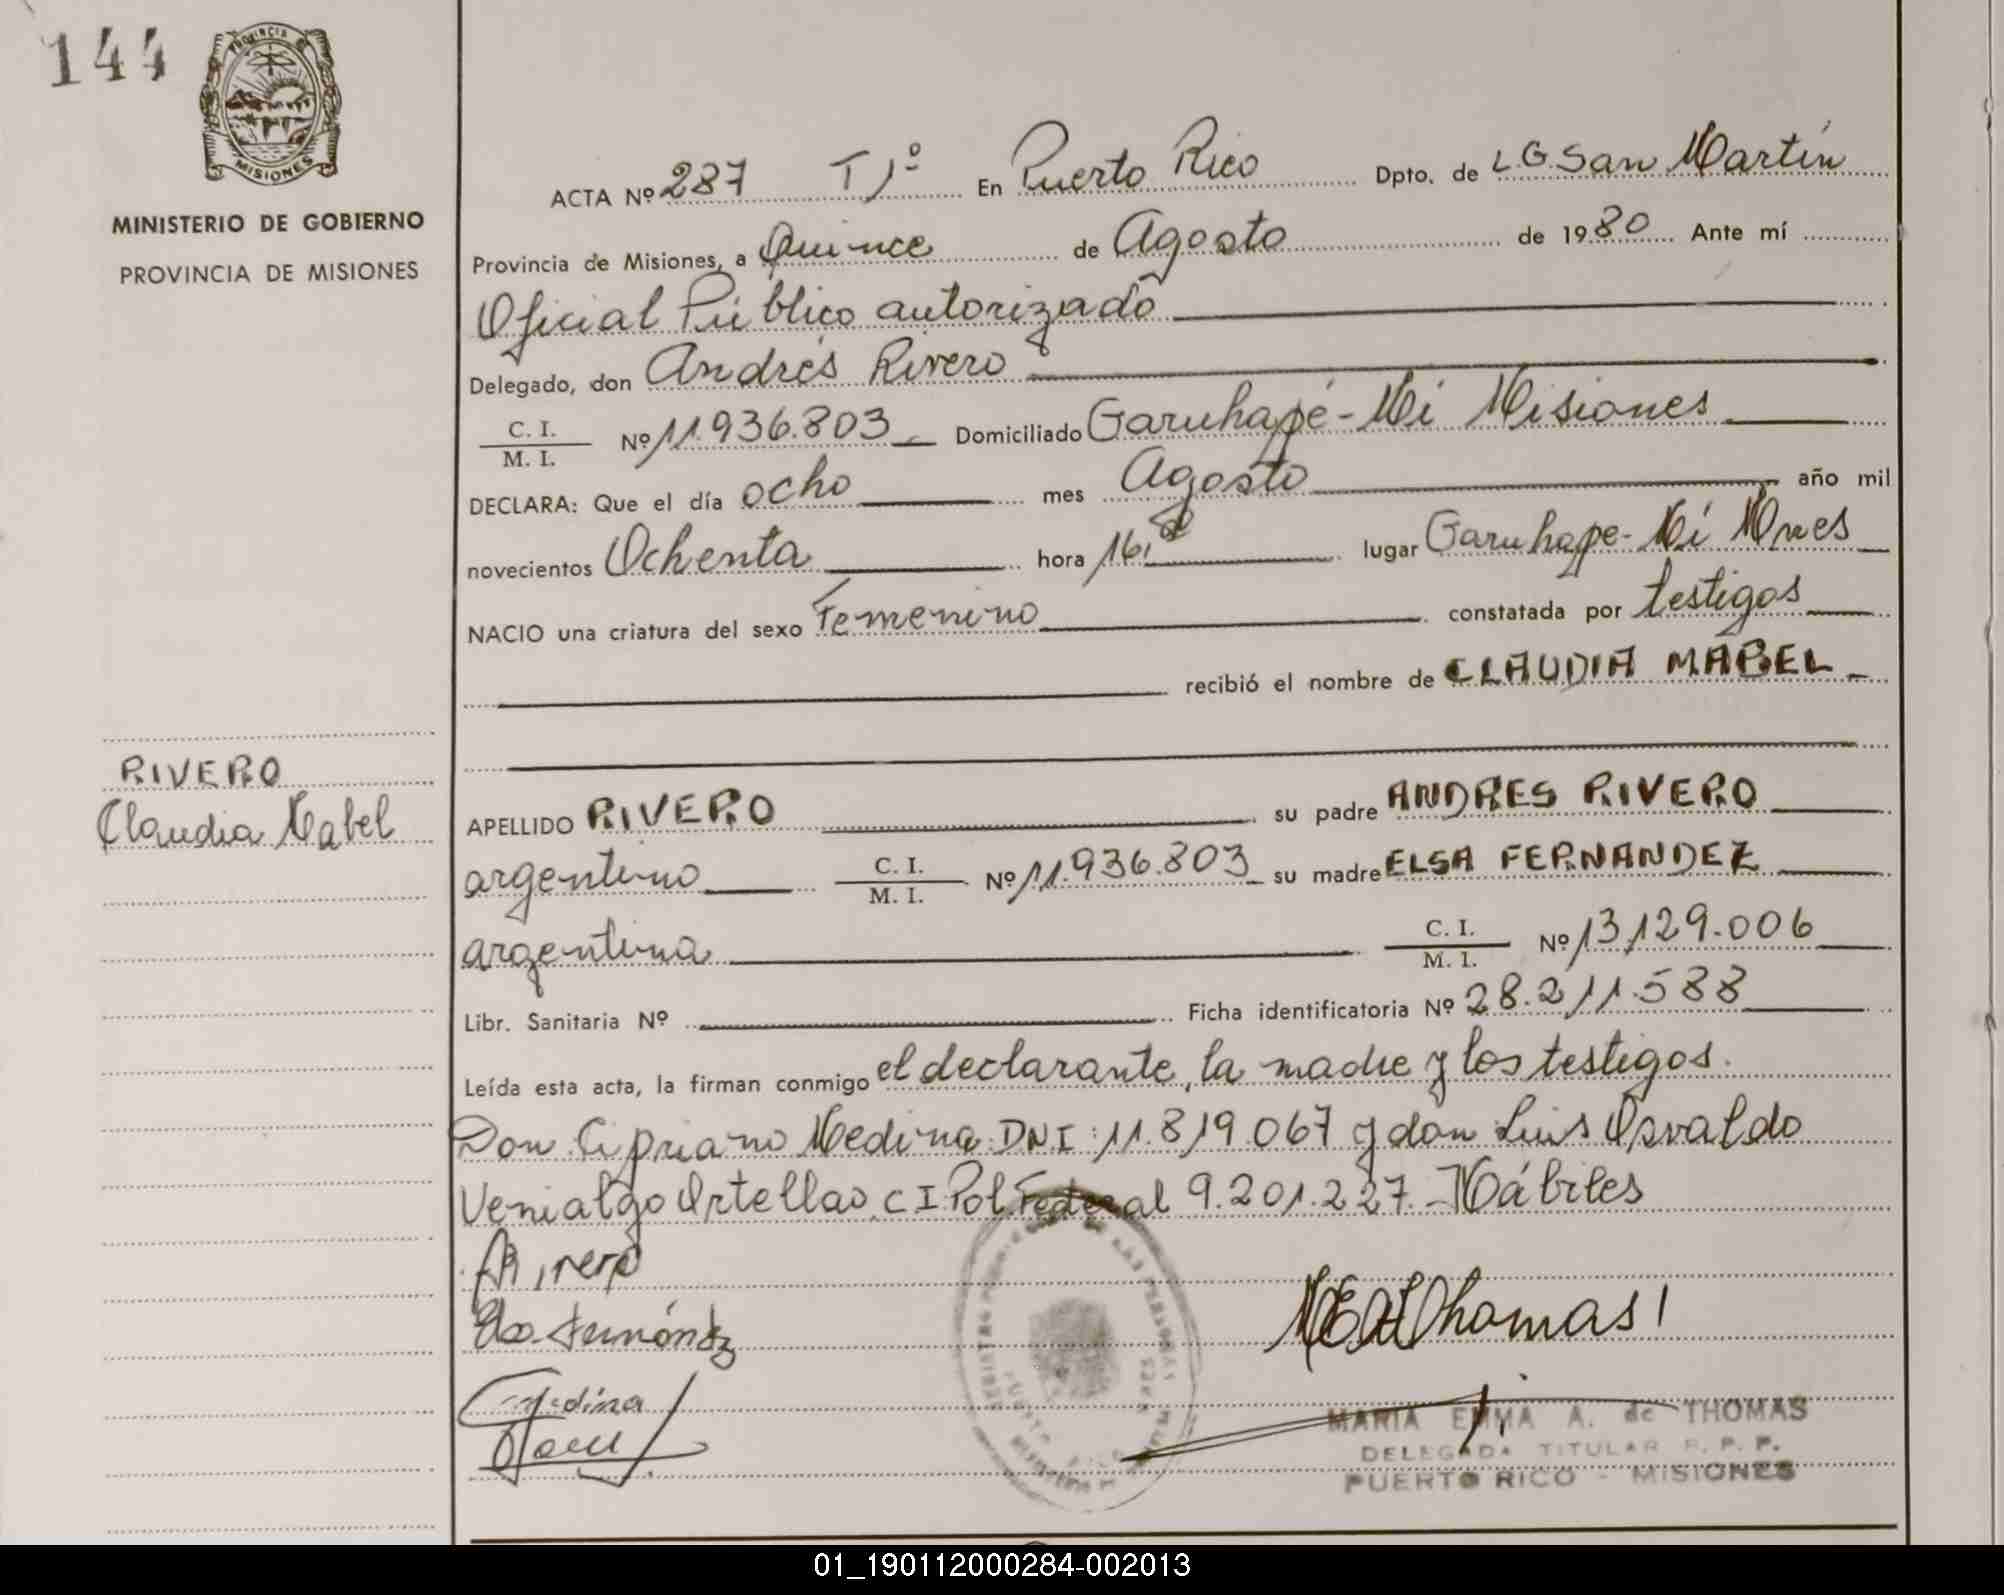 144
PROVINCIA DE
MISIONES
MINISTERIO DE GOBIERNO
PROVINCIA DE MISIONES
ACTA Nº 287 Tº 1º En Puerto Rico Dpto. de L.G. San Martín
Provincia de Misiones, a Quince de Agosto de 1980 Ante mí
Oficial Público autorizado
Delegado, don Andrés Rivero
C. I.
M. I. Nº 11.936.803 Domiciliado Garuhapé-Mi Misiones
DECLARA: Que el día ocho mes Agosto año mil
novecientos Ochenta hora 16, lugar Garuhape-Mi Mnes
NACIO una criatura del sexo Femenino constatada por testigos
recibió el nombre de CLAUDIA MABEL
RIVERO
Claudia Mabel
APELLIDO RIVERO su padre ANDRES RIVERO
argentino C. I. M. I. Nº 11.936.803 su madre ELSA FERNANDEZ
argentina C. I. M. I. Nº 13.129.006
Libr. Sanitaria Nº Ficha identificatoria Nº 28.211.588
Leída esta acta, la firman conmigo el declarante, la madre y los testigos.
Don Cipriano Medina DNI: 11.819.067 y don Luis Osvaldo
Venialgo Ortellao C I Pol. Federal 9.201.227.- Hábiles
A Rivero
Elsa Fernández
C Medina
MEA Thomas
MARIA EMMA A. de THOMAS
DELEGADA TITULAR R. P. P.
PUERTO RICO - MISIONES
01_190112000284-002013